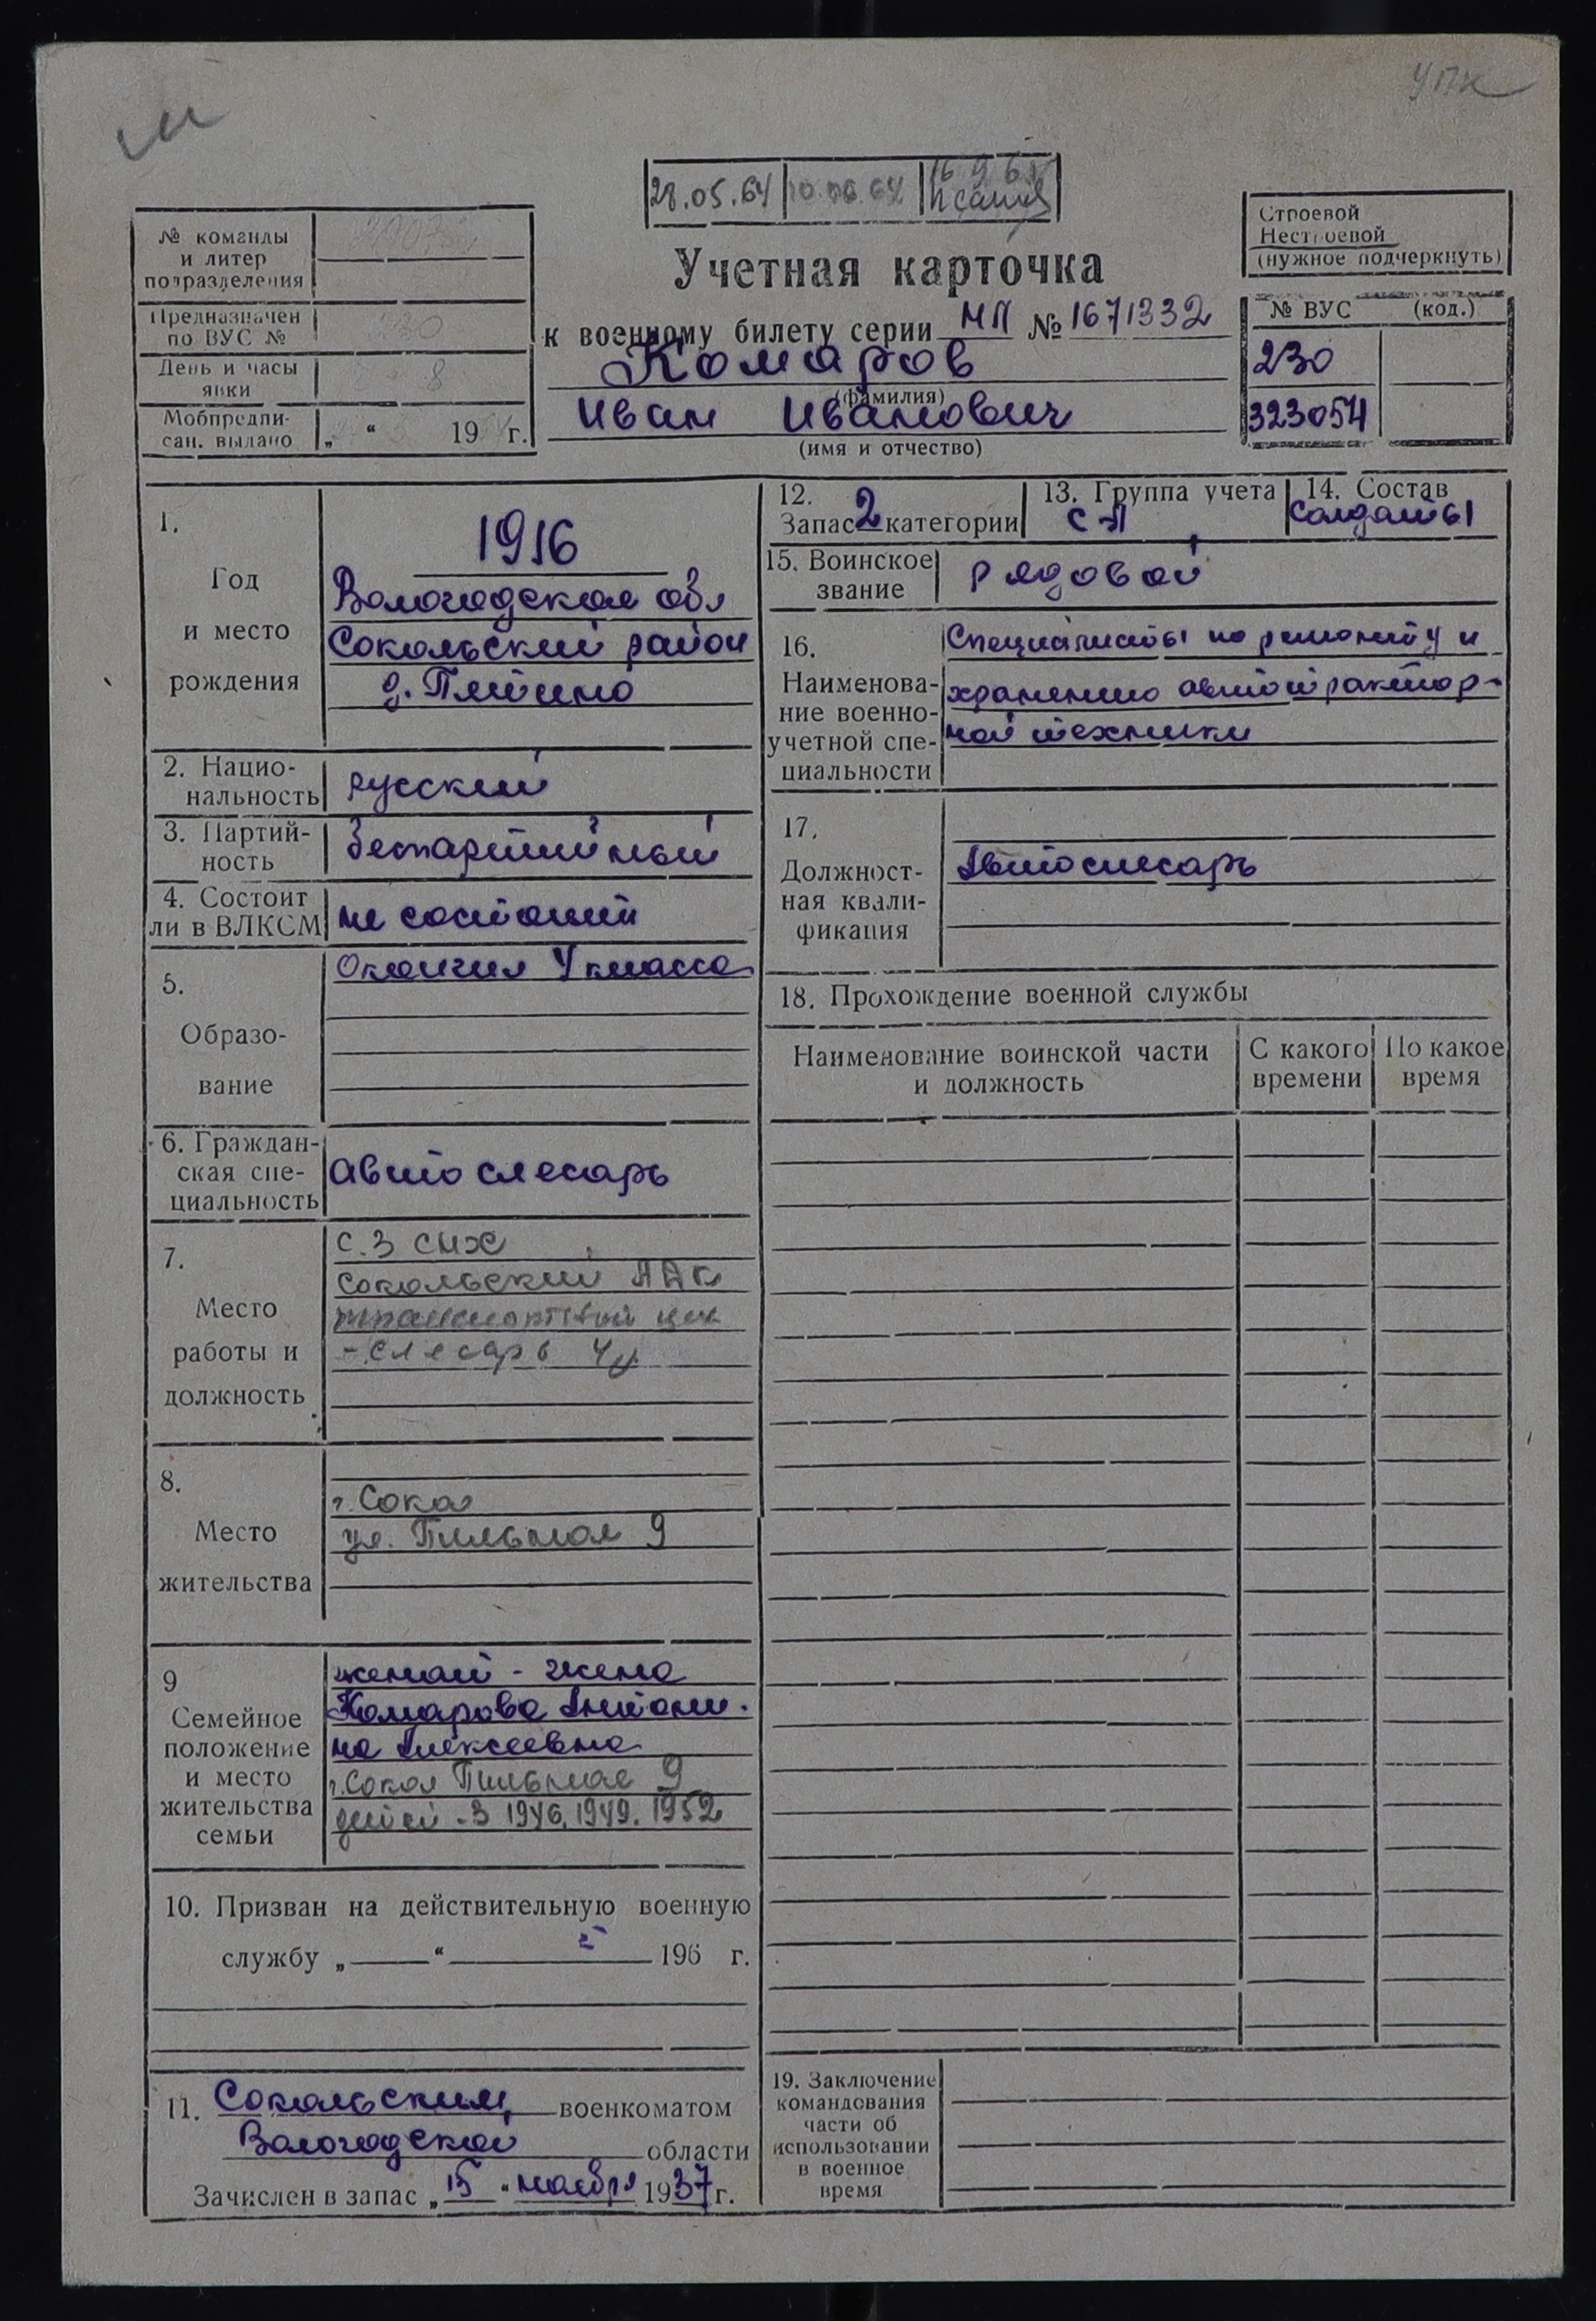 УПК
28.05.64 10.06.64 16 9 65
№ команды
и литер
подразделения
Предназначен
по ВУС № 230
День и часы
явки 8
Мобпредпи-
сан. выдано „ “ 19 г.
Строевой
Нестроевой
(нужное подчеркнуть)
Учетная карточка
к военному билету серии НЛ № 1671332
Комаров
(фамилия)
Иван Иванович
(имя и отчество)
№ ВУС (код.)
230
323054
1.
Год
и место
рождения
1916
Вологодская обл
Сокольский район
2. Нацио-
нальность русский
3. Партий-
ность беспартийный
4. Состоит
ли в ВЛКСМ не состоит
5.
Образо-
вание
Окончил 4 класса
6. Граждан-
ская спе-
циальность
Авто слесарь
7.
Место
работы и
должность
С.З СНХ
Сокольский
транспортный цех
- слесарь 4
8.
Место
жительства
г. Сокол
ул. Пильная 9
9
Семейное
положение
и место
жительства
семьи
женат - жена
Комарова Антони-
на Алексеевна
г. Сокол Пильная 9
детей - 3 1946, 1949. 1952
10. Призван на действительную военную
службу „ “ 196 г.
11. Сокольским военкоматом
Вологодской области
Зачислен в запас „15“ ноября 1937 г.
12.
Запас 2 категории
13. Группа учета
СА
14. Состав
Солдаты
15. Воинское
звание
рядовой
16.
Наименова-
ние военно-
учетной спе-
циальности
Специалисты по ремонту и
хранению автотрактор-
ной техники
17.
Должност-
ная квали-
фикация
Автослесарь
18. Прохождение военной службы
Наименование воинской части
и должность
С какого
времени
По какое
время
19. Заключение
командования
части об
использовании
в военное
время